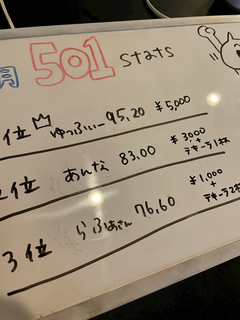 月 501 stats
1位 ゆっふぃー 95.20 ¥5,000
2位 あんな 83.00 ¥3,000
+
テキーラ1杯
3位 らふぁさん 76.60 ¥1,000
+
テキーラ2杯